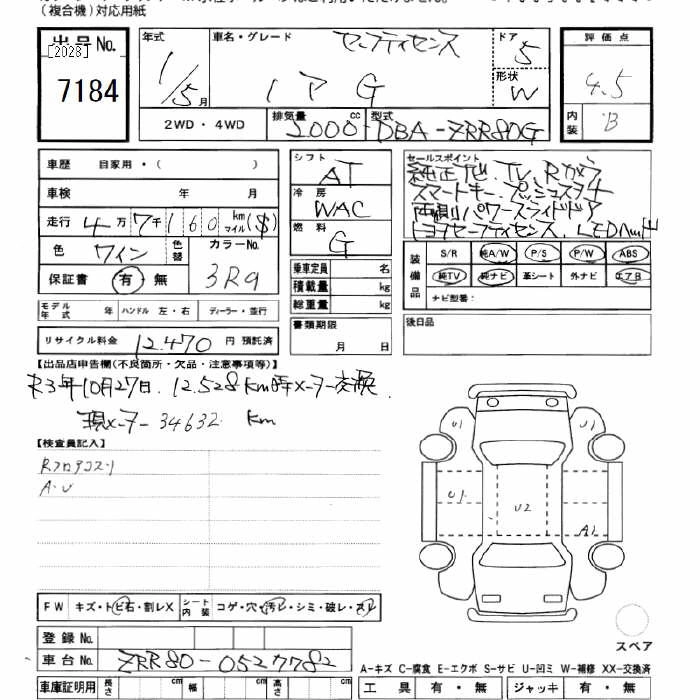 (複合機)対応用紙
出品No. 年式 車名・グレード セーフティセンス ドア 5 評価点
[2023]
7184 1/5月 ノア G 形状 W 4.5
2WD・4WD 排気量 2000 cc 型式 DBA-ZRR80G 内装 B
車歴 自家用・( ) シフト AT セールスポイント
純正ナビ、TV、Rカメラ
車検 年 月 冷房 WAC スマートキー、プッシュスタート
走行 4万7千160 km マイル ($) 両側パワースライドドア
トヨタセーフティセンス、LEDヘッド
色 ワイン 色替 カラーNo. 3R9 燃料 G
保証書 有・無 乗車定員 名
積載量 kg
総重量 kg
装備品 S/R 純A/W P/S P/W ABS
純TV 純ナビ 革シート 外ナビ エアB
ナビ型番:
モデル年式 年 ハンドル 左・右 ディーラー・並行
書類期限 月 日 後日品
リサイクル料金 12,470 円 預託済
【出品店申告欄(不良箇所・欠品・注意事項等)】
R3年10月27日、12,528km時メーター交換、
現メーター34632 km
【検査員記入】
Rフロアコスリ
A・U
U1 U1
U1 U2 A1
FW キズ・トビ石・割レX シート内装 コゲ・穴・汚レ・シミ・破レ・スレ
登録No.
車台No. ZRR80-0527782
スペア
A-キズ C-腐食 E-エクボ S-サビ U-凹ミ W-補修 XX-交換済
車庫証明用 長さ cm 幅 cm 高さ cm 工具 有・無 ジャッキ 有・無